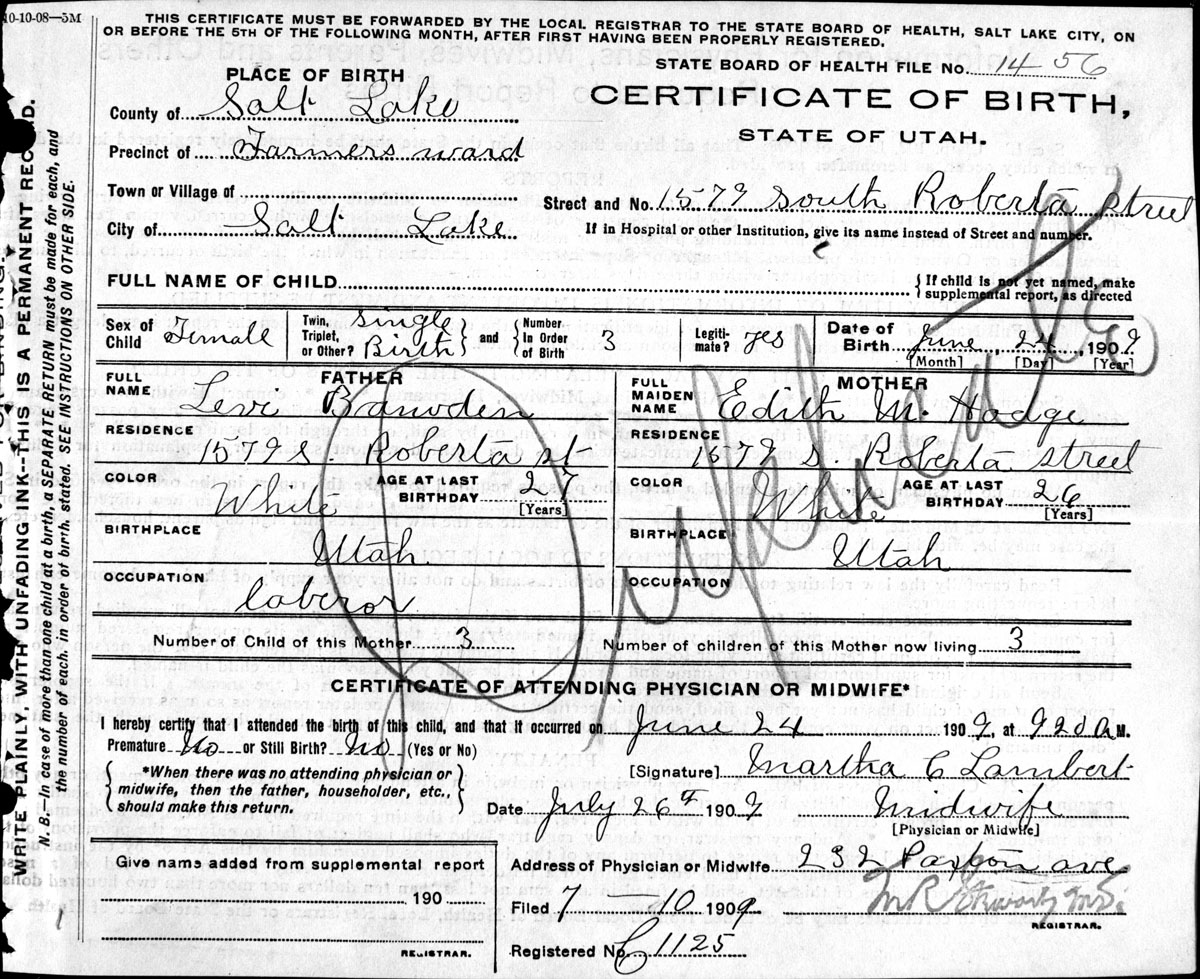 10-10-08—5M
THIS CERTIFICATE MUST BE FORWARDED BY THE LOCAL REGISTRAR TO THE STATE BOARD OF HEALTH, SALT LAKE CITY, ON
OR BEFORE THE 5TH OF THE FOLLOWING MONTH, AFTER FIRST HAVING BEEN PROPERLY REGISTERED.
STATE BOARD OF HEALTH FILE No. 1456
CERTIFICATE OF BIRTH,
STATE OF UTAH.
PLACE OF BIRTH
County of Salt Lake
Precinct of Farmers ward
Town or Village of
City of Salt Lake
Street and No. 1579 South Roberta Street
If in Hospital or other Institution, give its name instead of Street and number.
FULL NAME OF CHILD
If child is not yet named, make
supplemental report, as directed
Sex of Child Female
Twin, Triplet, or Other? Single Birth and Number In Order of Birth 3
Legiti-mate? yes
Date of Birth June, 24, 1909
[Month] [Day] [Year]
Duplicate
FATHER
FULL NAME Levi Bawden
RESIDENCE 1579 S Roberta st
COLOR White AGE AT LAST BIRTHDAY 27
[Years]
BIRTHPLACE Utah
OCCUPATION laberor
MOTHER
FULL MAIDEN NAME Edith M. Hodge
RESIDENCE 1579 S. Roberta Street
COLOR White AGE AT LAST BIRTHDAY 26
[Years]
BIRTHPLACE Utah
OCCUPATION
Number of Child of this Mother 3 Number of children of this Mother now living 3
CERTIFICATE OF ATTENDING PHYSICIAN OR MIDWIFE*
I hereby certify that I attended the birth of this child, and that it occurred on June 24 1909, at 920 A M.
Premature No or Still Birth? No (Yes or No)
*When there was no attending physician or
midwife, then the father, householder, etc.,
should make this return.
[Signature] Martha C Lambert
Date July 26th 1909 Midwife
[Physician or Midwife]
Give name added from supplemental report
190
REGISTRAR.
Address of Physician or Midwife 232 Paxton ave
Filed 7—10 1909
REGISTRAR.
Registered No. C 1125
WRITE PLAINLY, WITH UNFADING INK--THIS IS A PERMANENT RECORD.
N. B. In case of more than one child at a birth, a SEPARATE RETURN must be made for each, and
the number of each, in order of birth, stated. SEE INSTRUCTIONS ON OTHER SIDE.